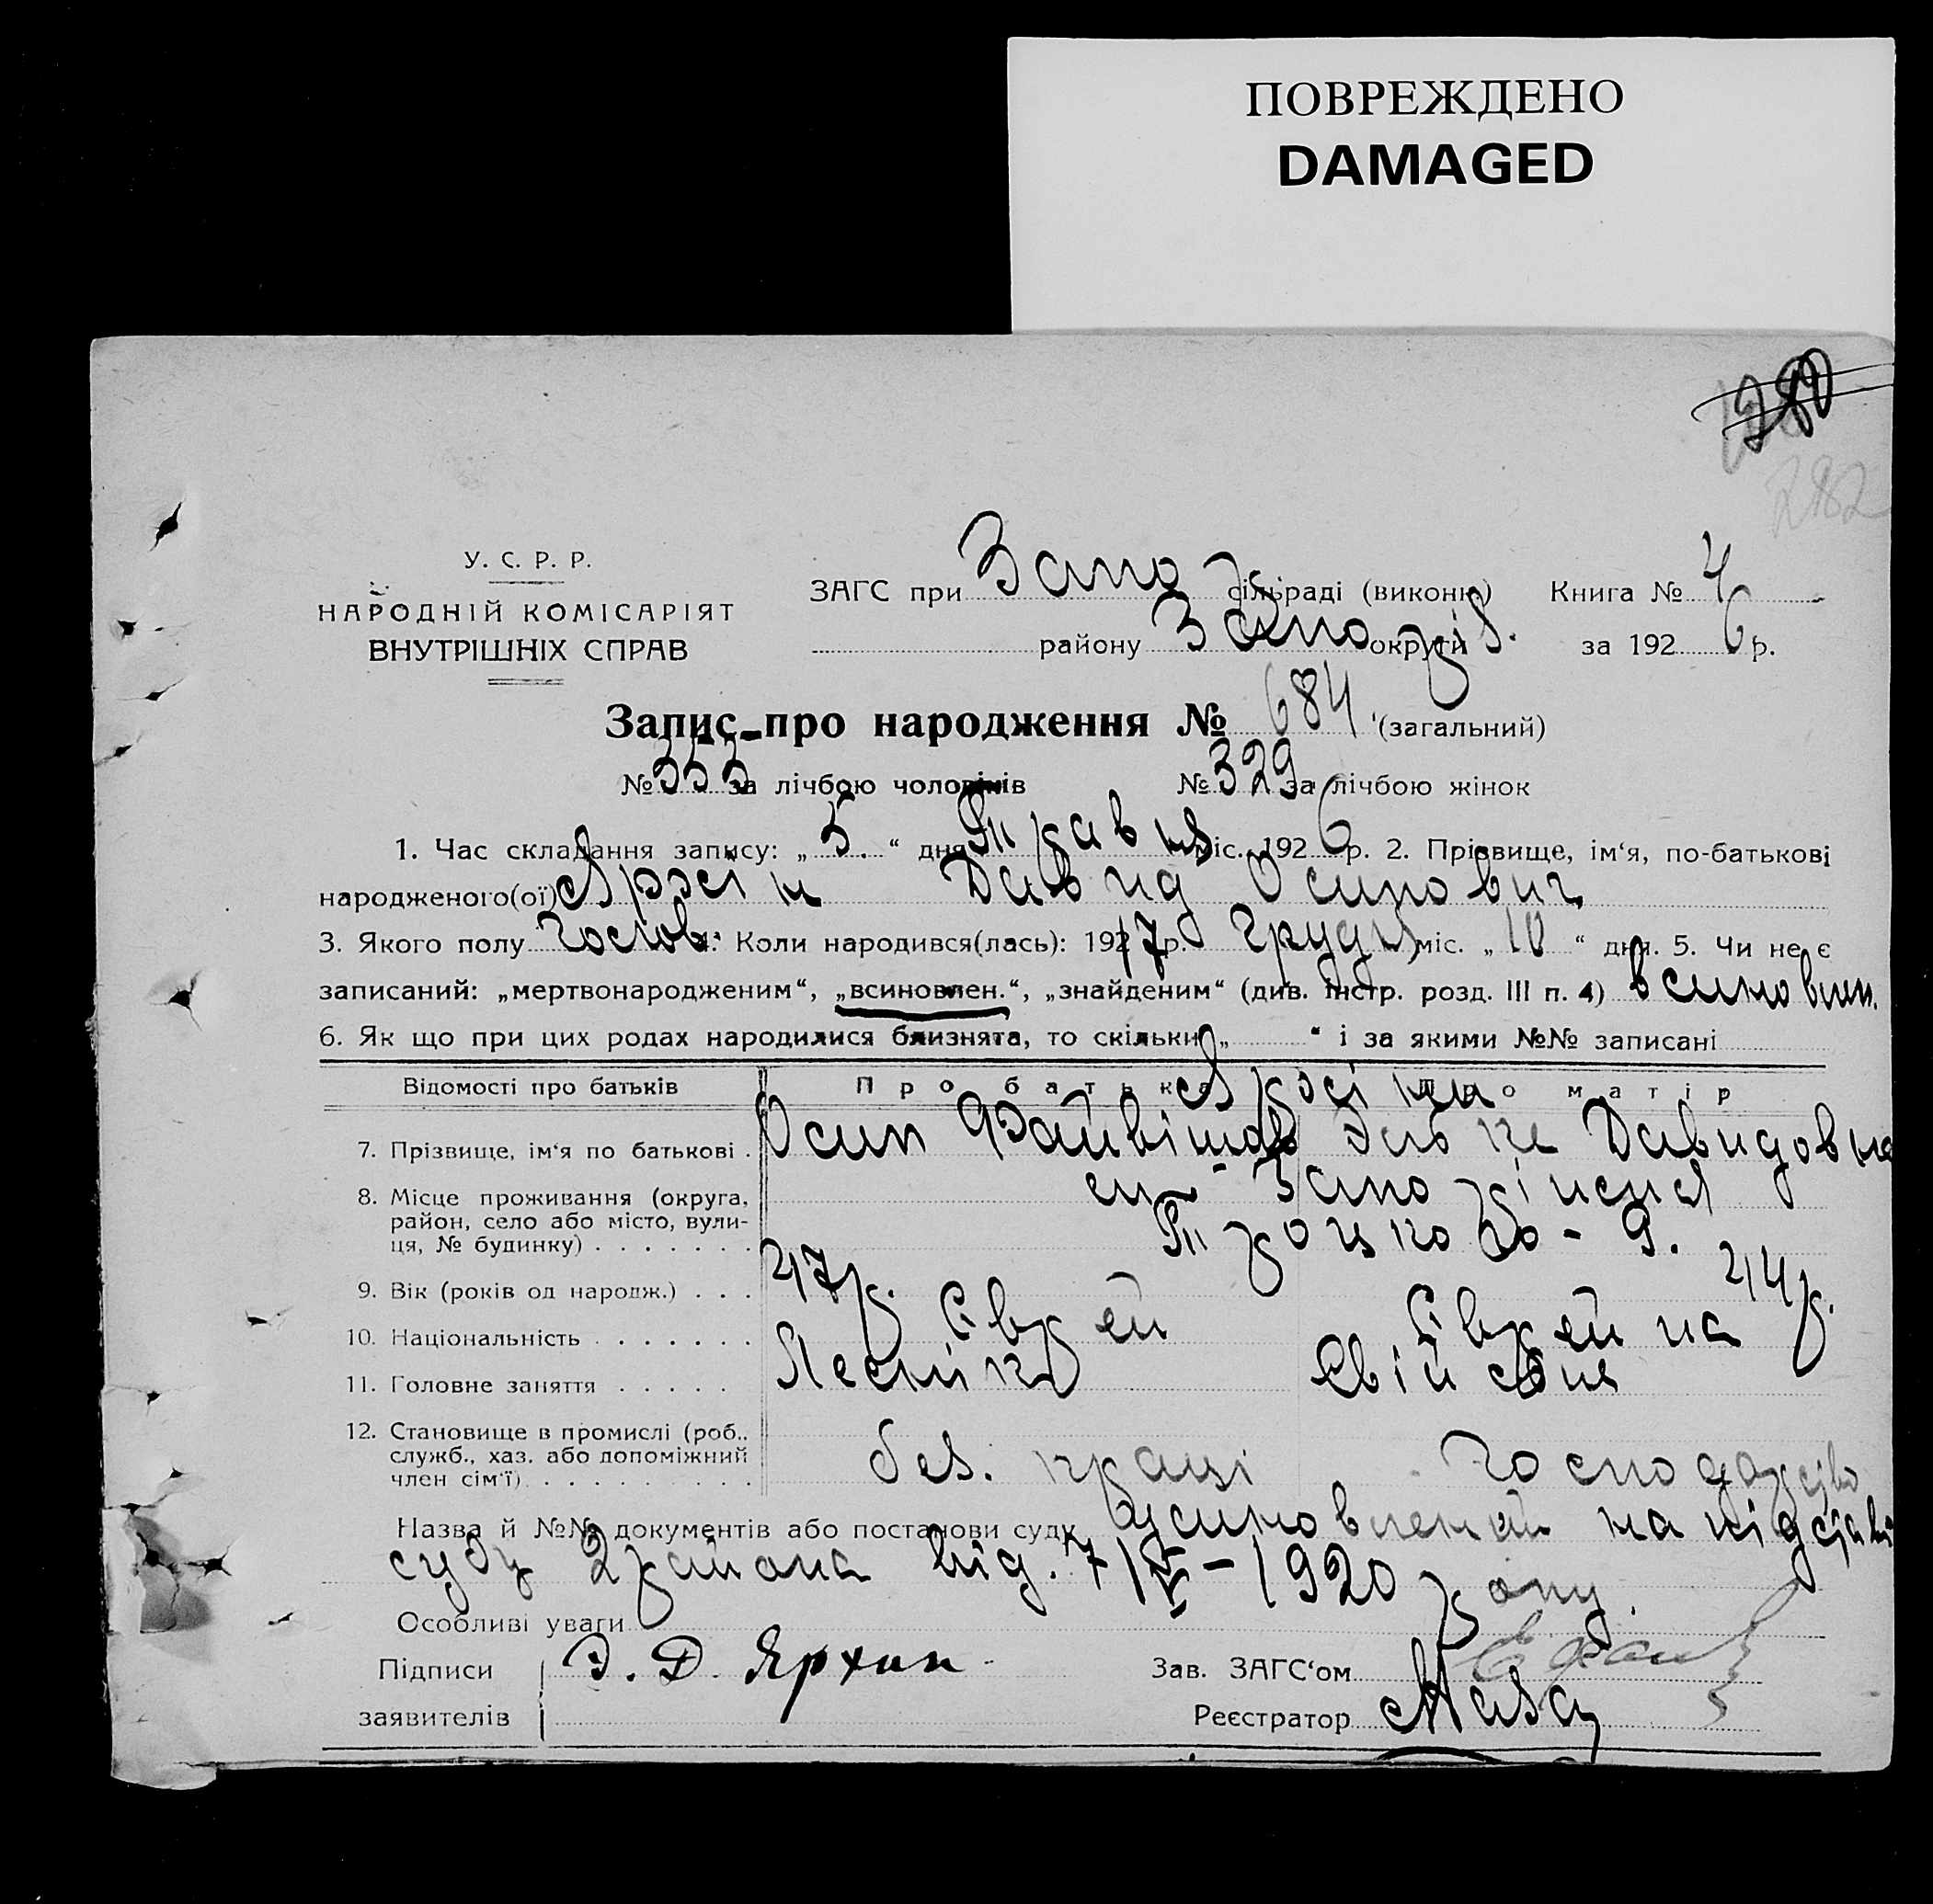 ПОВРЕЖДЕНО
DAMAGED
280
282
У. С. Р. Р.
НАРОДНІЙ КОМІСАРІЯТ
ВНУТРІШНІХ СПРАВ
ЗАГС при Запор сільраді (виконк.) Книга № 4
району Запоріз. округи за 1926 р.
Запис про народження № 684 (загальний)
№ 355 за лічбою чоловіків № 329 за лічбою жінок
1. Час складання запису: „5.“ дня Травня міс. 1926 р. 2. Прізвище, ім‘я, по-батькові
народженого(ої) Давид Осипович
3. Якого полу 4. Коли народився(лась): 1917 р. Грудня міс. „10“ дня. 5. Чи не є
записаний: „мертвонародженим“, „всиновлен.“, „знайденим“ (див. інстр. розд. III п. 4) всиновлен.
6. Як що при цих родах народилися близнята, то скільки „ “ і за якими №№ записані
Відомості про батьків Про батька Про матір
7. Прізвище, ім‘я по батькові . Осип Давидовна
8. Місце проживання (округа,
район, село або місто, вули-
ця, № будинку) . . . . . . . Троцького - 9.
9. Вік (років од народж.) . . . 47 р. 44 р.
10. Національність . . . . . . . Єврей Єврейка
11. Головне заняття . . . . .
12. Становище в промислі (роб.,
служб., хаз. або допоміжний
член сім‘ї) . . . . . . . . . без. праці господарство
Назва й №№ документів або постанови суду Усиновлений на підставі
суду 2 района від. 7/IV-1920 року.
Особливі уваги
Підписи Э. Д. Ярхин Зав. ЗАГС‘ом
заявителів Реєстратор